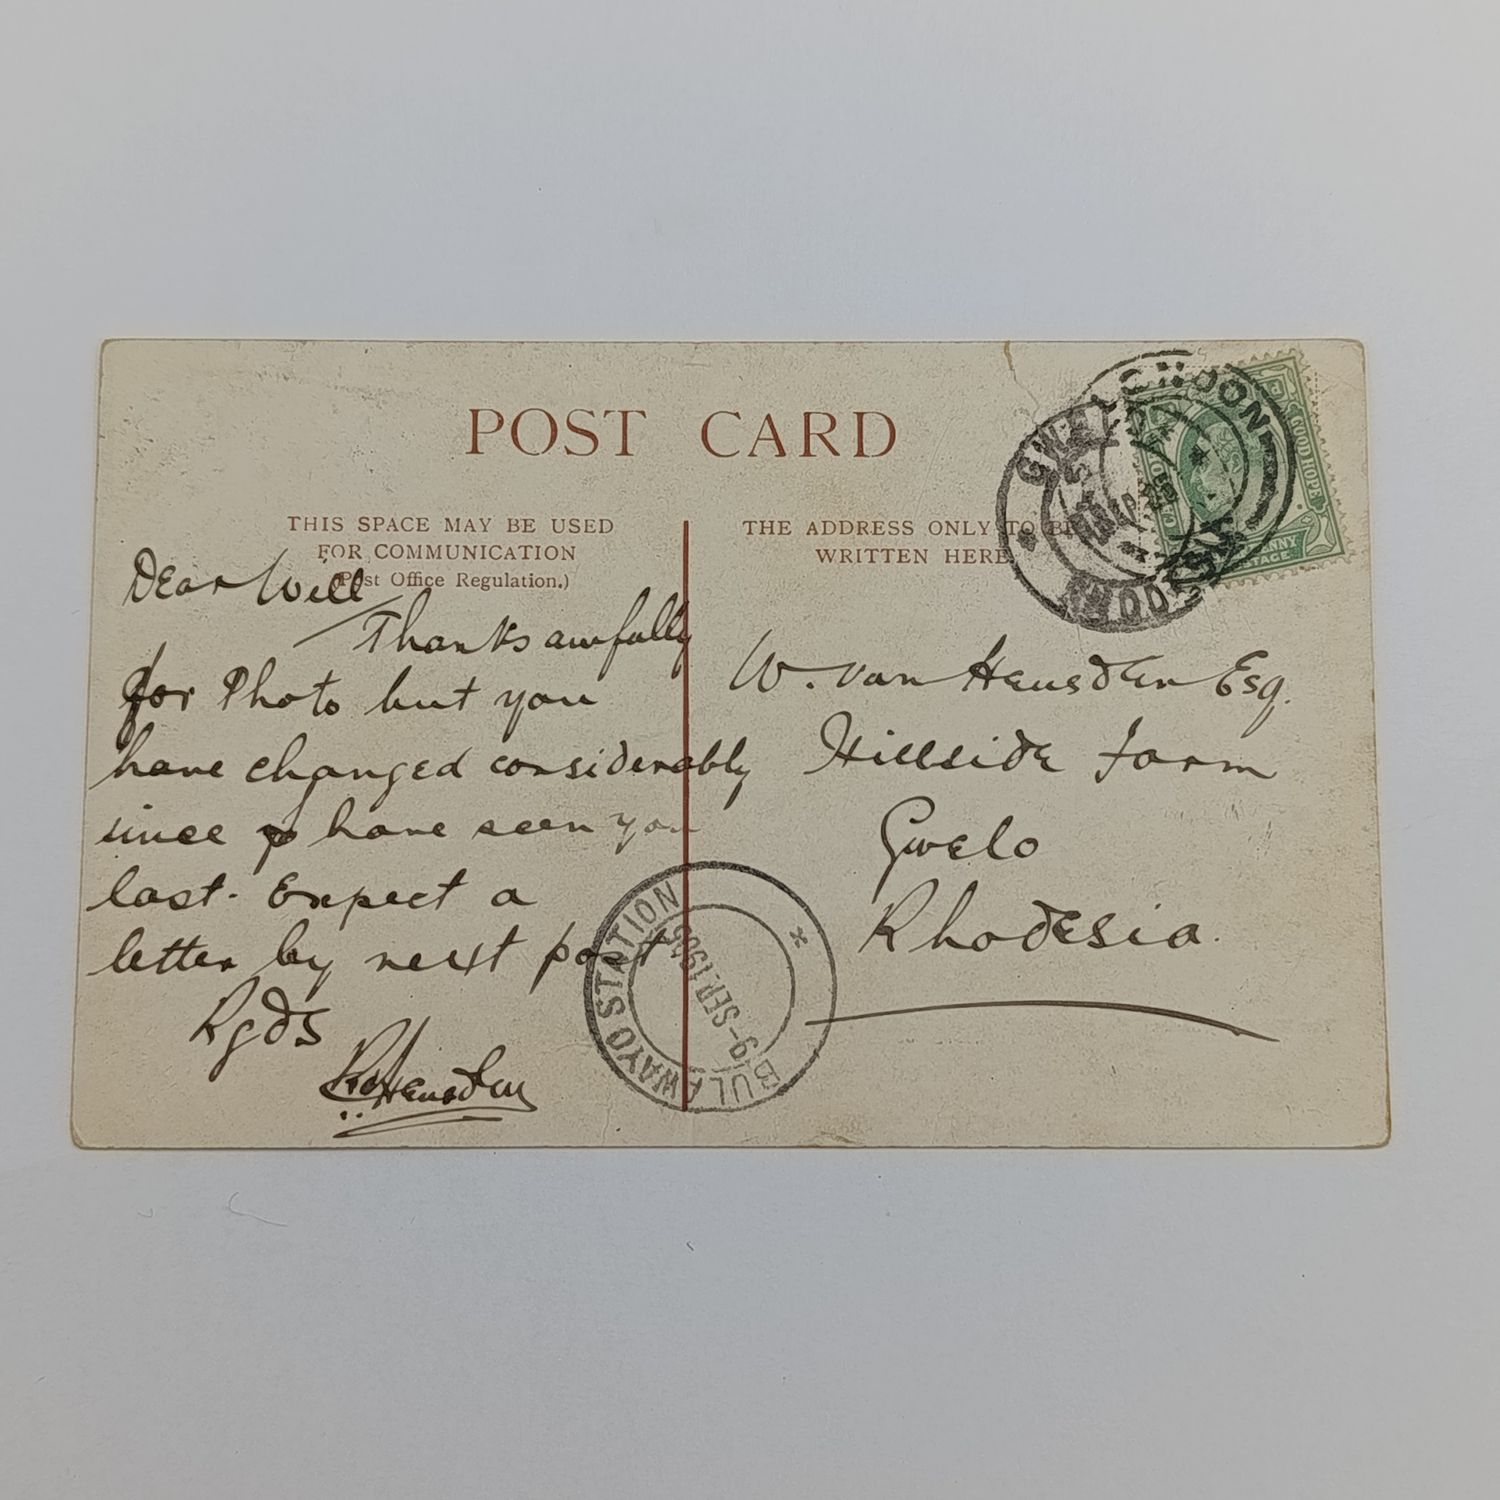 POST CARD
THIS SPACE MAY BE USED
FOR COMMUNICATION
(Post Office Regulation.)
Dear Will
Thanks awfully
for Photo but you
have changed considerably
since I have seen you
last. Expect a
letter by next post
Rgds
THE ADDRESS ONLY TO BE
WRITTEN HERE
W. van Heusden Esq.
Hillside Farm
Gwelo
Rhodesia.
LONDON
GWELO
RHODESIA
GOOD HOPE
PENNY
POSTAGE
BULAWAYO STATION
9-SEP.1905